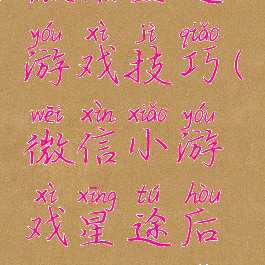 yóu xì jì qiǎo
游戏技巧(
wēi xìn xiǎo yóu
微信小游
xì xīng tú hòu
戏星途后